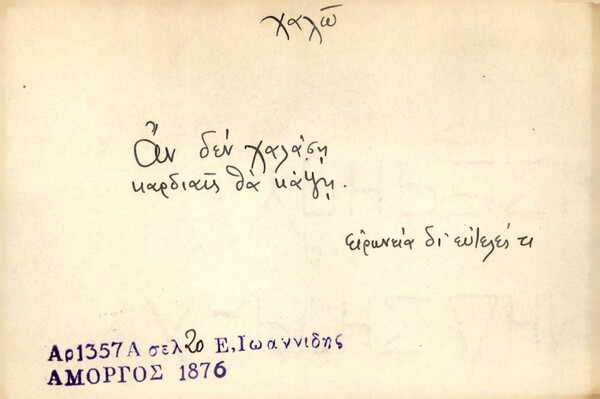 χαλῶ
Ἂν δὲν χαλάσῃ
καρδιαῖς θὰ κάψῃ.
εἰρωνεία δι' εὐτελές τι
Αρ1357Α σελ20 Ε,Ιωαννιδης
ΑΜΟΡΓΟΣ 1876